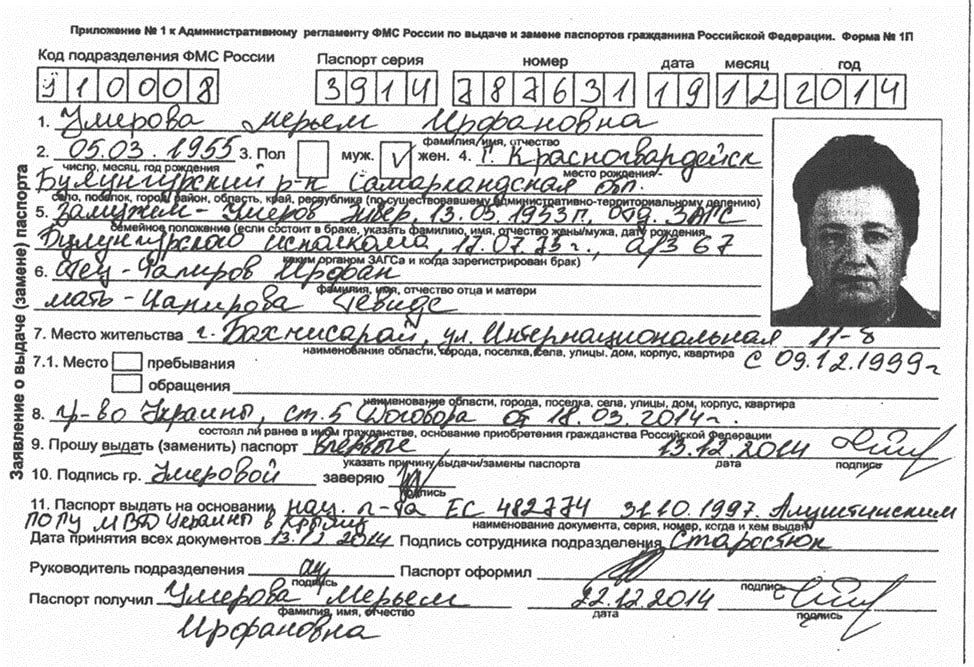 Приложение № 1 к Административному регламенту ФМС России по выдаче и замене паспортов гражданина Российской Федерации. Форма № 1П
Код подразделения ФМС России Паспорт серия номер дата месяц год
910008 3914 787631 19 12 2014
Заявление о выдаче (замене) паспорта
1. Умерова Мерьем Ирфановна
фамилия, имя, отчество
2. 05.03.1955 3. Пол муж. V жен. 4. г. Красногвардейск
число, месяц, год рождения место рождения
Булунгурский р-н Самаркандская обл.
село, поселок, город, район, область, край, республика (по существовавшему административно-территориальному делению)
5. замужем - Умеров Энвер, 13.05.1953 г., отд. ЗАГС
семейное положение (если состоит в браке, указать фамилию, имя, отчество жены/мужа, дату рождения,
Булунгурского исполкома, 17.07.75 г., а/з 67
каким органом ЗАГСа и когда зарегистрирован брак)
6. Отец - Ирфан
фамилия, имя, отчество отца и матери
мать -
7. Место жительства г. Бахчисарай, ул. Интернациональная 11-8
наименование области, города, поселка, села, улицы, дом, корпус, квартира с 09.12.1999 г
7.1. Место пребывания
обращения
наименование области, города, поселка, села, улицы, дом, корпус, квартира
8. гр-во Украины, ст. 5 Договора от 18.03.2014 г.
состоял ли ранее в ином гражданстве, основание приобретения гражданства Российской Федерации
9. Прошу выдать (заменить) паспорт впервые 13.12.2014
указать причину выдачи/замены паспорта дата подпись
10. Подпись гр. Умеровой заверяю
подпись
11. Паспорт выдать на основании нац. п-та ЕС 482774 31.10.1997. Алуштинским
наименование документа, серия, номер, когда и кем выдан
МВД Украины в Крыму
Дата принятия всех документов 13.12 2014 Подпись сотрудника подразделения Старостюк
Руководитель подразделения Паспорт оформил
подпись подпись
Паспорт получил Умерова Мерьем 22.12.2014
фамилия, имя, отчество дата подпись
Ирфановна